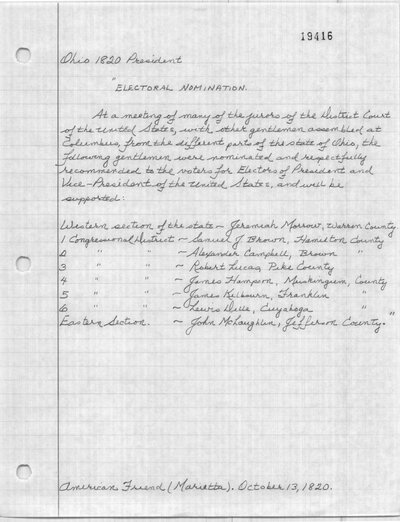 19416
Ohio 1820 President
"ELECTORAL NOMINATION.
At a meeting of many of the jurors of the District Court
of the United States, with other gentlemen assembled at
Columbus, from the different parts of the state of Ohio, the
following gentlemen were nominated and respectfully
recommended to the voters for Electors of President and
Vice-President of the United States, and will be
supported:
Western section of the state ~ Jeremiah Morrow, Warren County
1 Congressional District ~ Samuel J. Brown, Hamilton County
2 " " ~ Alexander Campbell, Brown "
3 " " ~ Robert Lucas, Pike County
4 " " ~ James Hampson, Muskingum, County
5 " " ~ James Kilbourn, Franklin "
6 " " ~ Lewis Dille, Cuyahoga "
Eastern Section. ~ John McLaughlin, Jefferson County."
American Friend (Marietta). October 13, 1820.